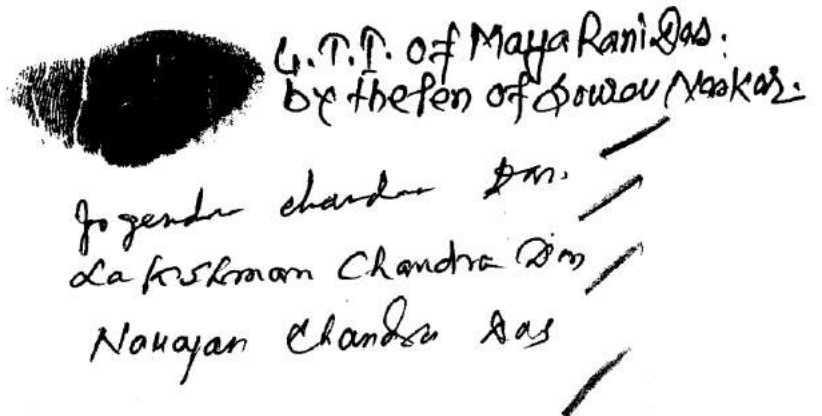 L.T.I. of Maya Rani Das.
by the Pen of Sourav Naskar.
Jogendra chandra Das.
Lakshman Chandra Das
Narayan Chandra Das